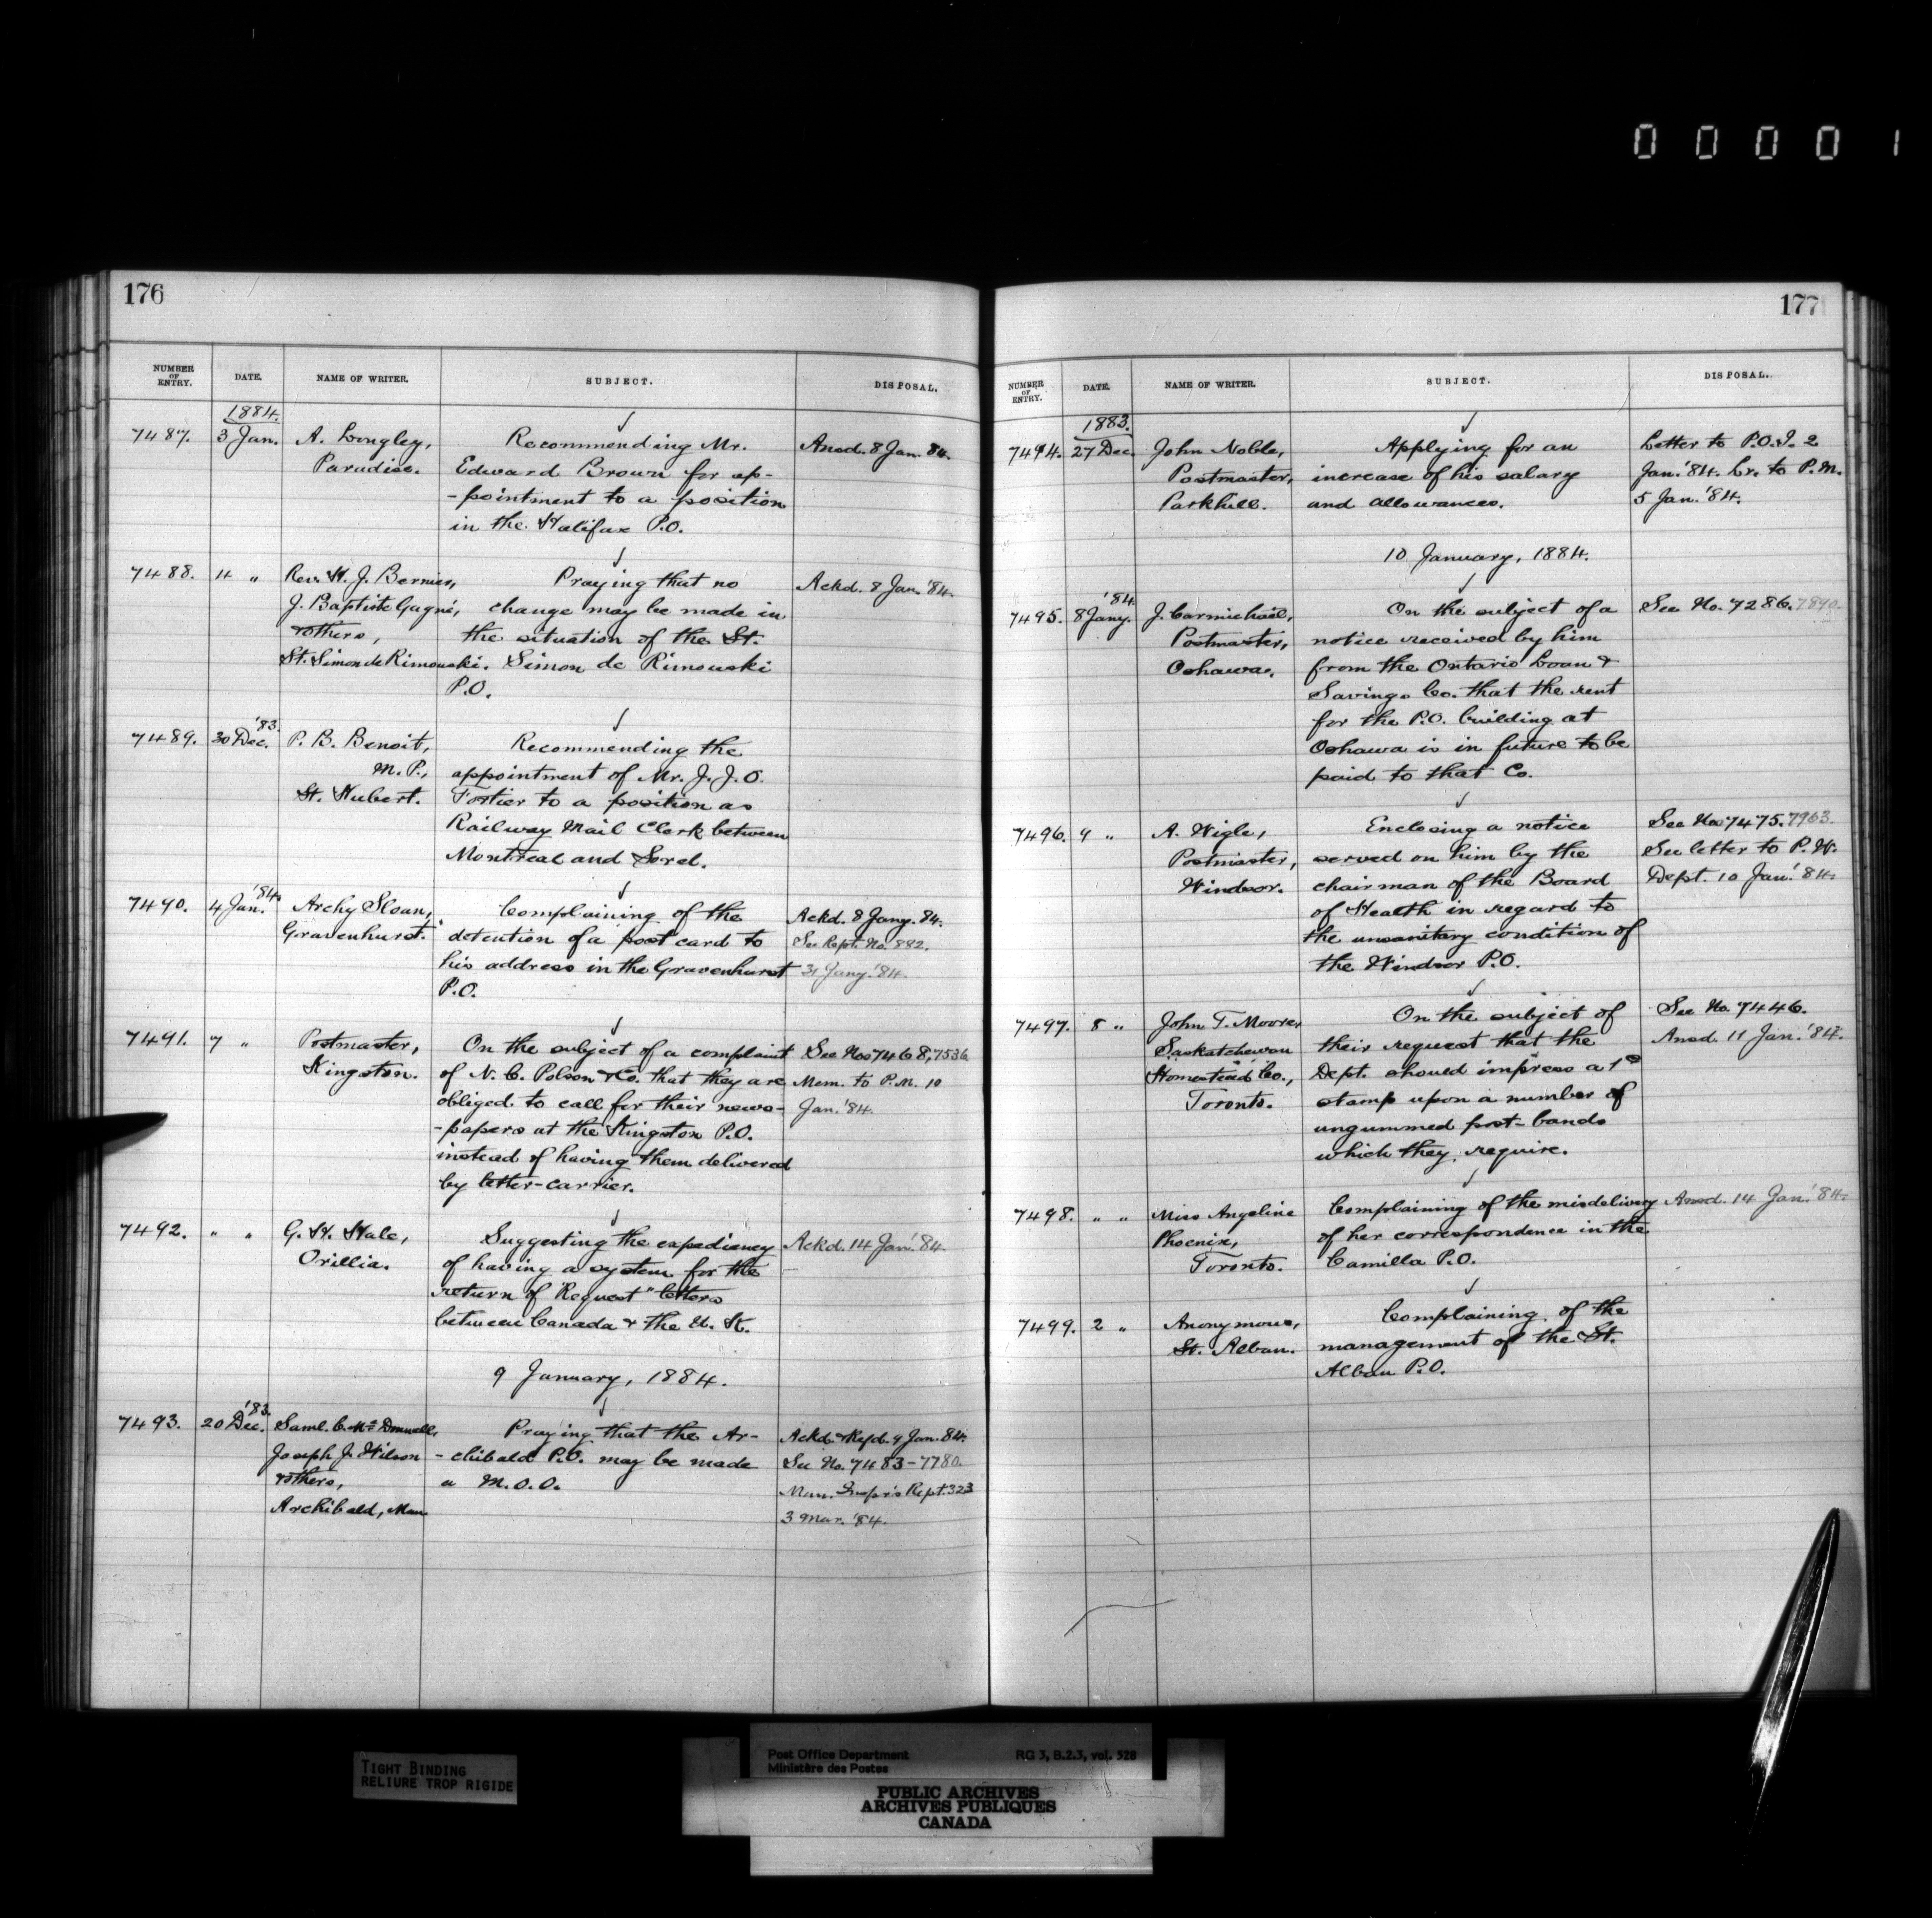 00001
176
NUMBER OF ENTRY. DATE. NAME OF WRITER. SUBJECT. DISPOSAL.
1884.
7487. 3 Jan. A. Longley, Recommending Mr. Ansd. 8 Jan. 84.
Paradise. Edward Brown for ap-
-pointment to a position
in the Halifax P.O.
7488. 4 " Rev. H. J. Bernier, Praying that no Ackd. 8 Jan. '84.
J. Baptiste Gagné, change may be made in
& others, the situation of the St.
St. Simon de Rimouski. Simon de Rimouski
P.O.
'83.
7489. 30 Dec. P. B. Benoit, Recommending the
M.P., appointment of Mr. J. J. O.
St. Hubert. Fortier to a position as
Railway Mail Clerk between
Montreal and Sorel.
'84.
7490. 4 Jan. Archy Sloan, Complaining of the Ackd. 8 Jany. 84.
Gravenhurst. detention of a post card to See Rept. No. 882.
his address in the Gravenhurst 31 Jany. '84.
P.O.
7491. 7 " Postmaster, On the subject of a complaint See Nos 7468, 7536
Kingston. of N. C. Polson & Co. that they are Mem. to P.M. 10
obliged to call for their news- Jan. '84.
-papers at the Kingston P.O.
instead of having them delivered
by letter-carrier.
7492. " " G. H. Hale, Suggesting the expediency Ackd. 14 Jan. '84.
Orillia. of having a system for the
return of "Request" letters
between Canada & the U. K.
9 January, 1884.
'83.
7493. 20 Dec. Saml. C. McDonnell, Praying that the Ar- Ackd. & Refd. 9 Jan. 84.
Joseph J. Wilson -chibald P.O. may be made See No. 7483-7780.
& others, a M.O.O. Man. Inspr's Rept. 323
Archibald, Man. 3 Mar. '84.
177
NUMBER OF ENTRY. DATE. NAME OF WRITER. SUBJECT. DISPOSAL.
1883.
7494. 27 Dec. John Noble, Applying for an Letter to P.O.I. 2
Postmaster, increase of his salary Jan. '84. Lr. to P.M.
Parkhill. and allowances. 5 Jan. '84.
10 January, 1884.
'84
7495. 8 Jany. J. Carmichael, On the subject of a See No. 7286. 7890.
Postmaster, notice received by him
Oshawa. from the Ontario Loan &
Savings Co. that the rent
for the P.O. building at
Oshawa is in future to be
paid to that Co.
7496. 9 " A. Wigle, Enclosing a notice See Nos 7475. 7963.
Postmaster, served on him by the See letter to P. W.
Windsor. chairman of the Board Dept. 10 Jan. '84.
of Health in regard to
the unsanitary condition of
the Windsor P.O.
7497. 8 " John T. Moore, On the subject of See No. 7446.
Saskatchewan their request that the Ansd. 11 Jan. '84.
Homestead Co., Dept. should impress a 1c
Toronto. stamp upon a number of
ungummed post-bands
which they require.
7498. " " Miss Angeline Complaining of the misdelivery Ansd. 14 Jan. '84.
Phoenix, of her correspondence in the
Toronto. Camilla P.O.
7499. 2 " Anonymous, Complaining of the
St. Alban. management of the St.
Alban P.O.
TIGHT BINDING
RELIURE TROP RIGIDE
Post Office Department RG 3, B.2.3, vol. 528
Ministère des Postes
PUBLIC ARCHIVES
ARCHIVES PUBLIQUES
CANADA